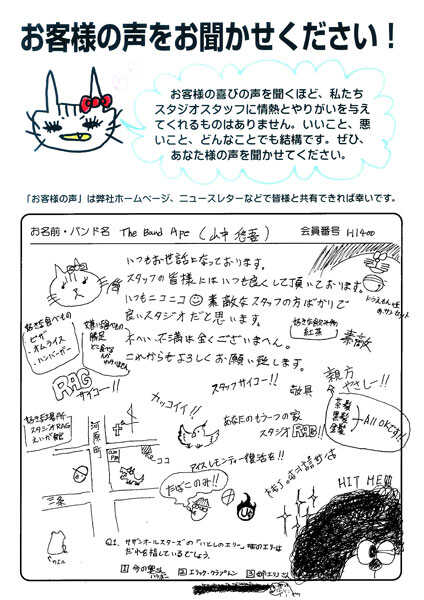 お客様の声をお聞かせください！
お客様の喜びの声を聞くほど、私たち
スタジオスタッフに情熱とやりがいを与え
てくれるものはありません。いいこと、悪
いこと、どんなことでも結構です。ぜひ、
あなた様の声を聞かせてください。
「お客様の声」は弊社ホームページ、ニュースレターなどで皆様と共有できれば幸いです。
お名前・バンド名 The Band Ape
会員番号 H1400
いつもお世話になっております。
スタッフの皆様にはいつも良くして頂いております。
いつもニコニコ 素敵なスタッフの方ばかりで
良いスタジオだと思います。
不満は全くございません。
これからもよろしくお願い致します。
敬具
スタッフサイコー!!
好きな食べもの
ピザ
オムライス
ハンバーガー
好きな飲み物
紅茶
素敵
RAG
サイコー!!
カッコイイ!!
親方
やさしー!!
茶髪
黒髪
金髪
All OKです!!
好きな場所
スタジオRAG
えいが館
河原町
三条
ココ
あなたのもう一つの家
スタジオRAG!!
アイスレモンティー復活を!!
たばこのみ!!
HIT ME
Q1. サザンオールスターズの「いとしのエリー」のエリーは
だれを指しているでしょう。
1 今の奥さん
2 エリック・クラプトン
3